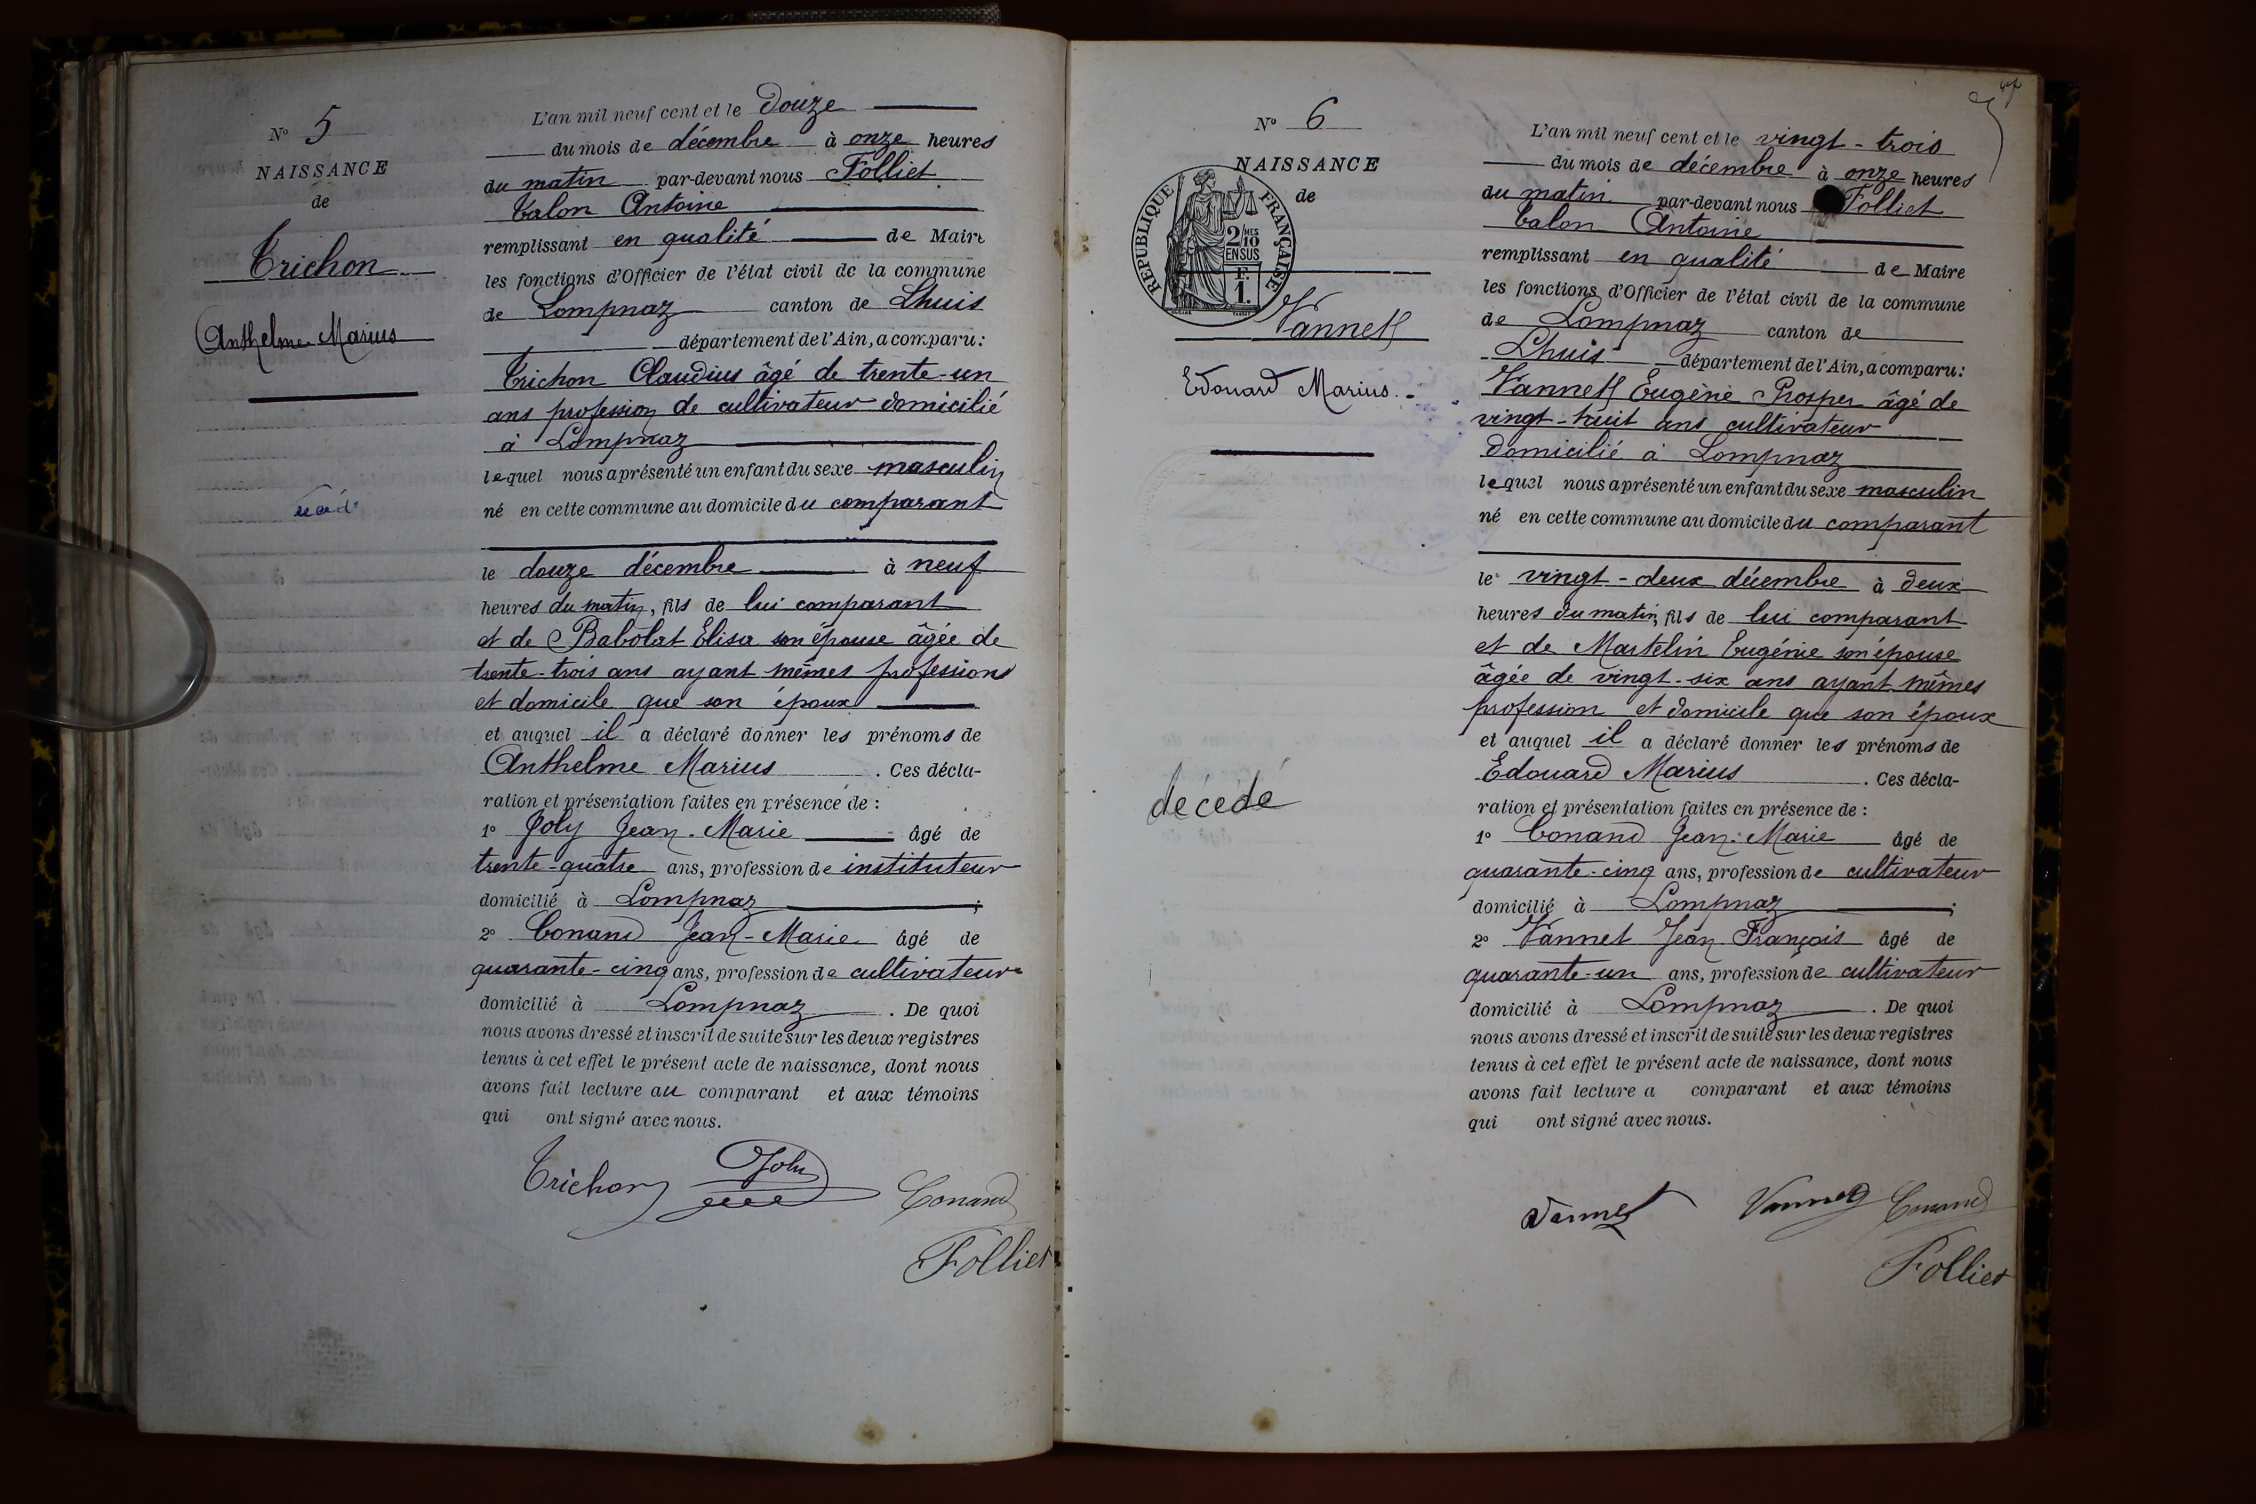 N° 5
NAISSANCE
de
Trichon
Anthelme Marius
L'an mil neuf cent et le douze
du mois de décembre à onze heures
du matin par-devant nous Folliet
Calon Antoine
remplissant en qualité de Maire
les fonctions d'Officier de l'état civil de la commune
de Lompnaz canton de Lhuis
département de l'Ain, a comparu :
Trichon Claudius âgé de trente-un
ans profession de cultivateur domicilié
à Lompnaz
lequel nous a présenté un enfant du sexe masculin
né en cette commune au domicile du comparant
le douze décembre à neuf
heures du matin, fils de lui comparant
et de Babolat Elisa son épouse âgée de
trente-trois ans ayant mêmes professions
et domicile que son époux
et auquel il a déclaré donner les prénoms de
Anthelme Marius. Ces décla-
ration et présentation faites en présence de :
1° Joly Jean-Marie âgé de
trente-quatre ans, profession de instituteur
domicilié à Lompnaz ;
2° Conand Jean-Marie âgé de
quarante-cinq ans, profession de cultivateur
domicilié à Lompnaz. De quoi
nous avons dressé et inscrit de suite sur les deux registres
tenus à cet effet le présent acte de naissance, dont nous
avons fait lecture au comparant et aux témoins
qui ont signé avec nous.
Trichon Joly Conand
Folliet
N° 6
NAISSANCE
de
REPUBLIQUE FRANÇAISE
2/10 MES
EN SUS
F.
1.
Vannet
Edouard Marius.
décédé
L'an mil neuf cent et le vingt-trois
du mois de décembre à onze heures
du matin par-devant nous Folliet
Calon Antoine
remplissant en qualité de Maire
les fonctions d'Officier de l'état civil de la commune
de Lompnaz canton de
Lhuis département de l'Ain, a comparu :
Vannet Eugène Prosper âgé de
vingt-huit ans cultivateur
domicilié à Lompnaz
lequel nous a présenté un enfant du sexe masculin
né en cette commune au domicile du comparant
le vingt-deux décembre à deux
heures du matin, fils de lui comparant
et de Martelin Eugénie son épouse
âgée de vingt-six ans ayant mêmes
profession et domicile que son époux
et auquel il a déclaré donner les prénoms de
Edouard Marius. Ces décla-
ration et présentation faites en présence de :
1° Conand Jean-Marie âgé de
quarante-cinq ans, profession de cultivateur
domicilié à Lompnaz ;
2° Vannet Jean François âgé de
quarante-un ans, profession de cultivateur
domicilié à Lompnaz. De quoi
nous avons dressé et inscrit de suite sur les deux registres
tenus à cet effet le présent acte de naissance, dont nous
avons fait lecture a comparant et aux témoins
qui ont signé avec nous.
Vannet Vannet Conand
Folliet